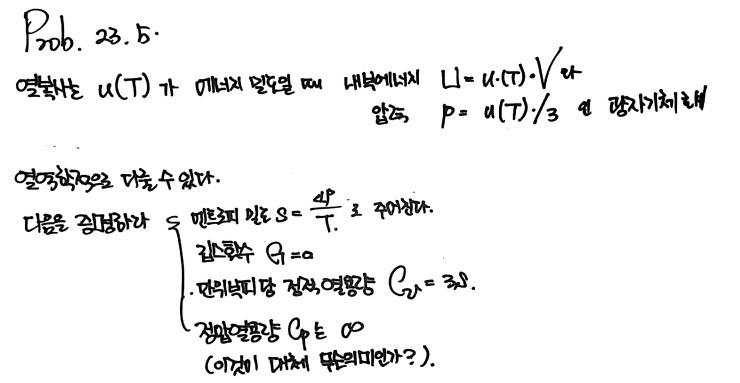 Prob. 23.5.
열복사는 u(T) 가 에너지 밀도일 때 내부에너지 U = u(T)·V 와
압력 p = u(T)/3 인 광자기체로
열역학적으로 다룰 수 있다.
다음을 증명하라 엔트로피 밀도 s = 4p/T 로 주어진다.
깁스함수 G = 0
·단위부피당 정적열용량 Cv = 3s.
정압열용량 Cp는 ∞
(이것이 대체 무슨의미인가?).